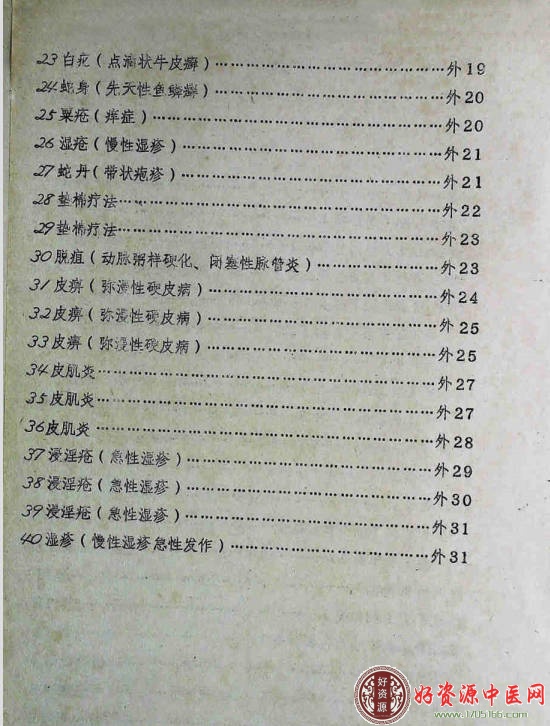 23白疕（点滴状牛皮癣）………………………………外19
24蛇身（先天性鱼鳞癣）………………………………外20
25粟疮（痒症）………………………………外20
26湿疮（慢性湿疹）………………………………外21
27蛇丹（带状疱疹）………………………………外21
28垫棉疗法………………………………外22
29垫棉疗法………………………………外23
30脱疽（动脉粥样硬化、闭塞性脉管炎）………………外23
31皮痹（弥漫性硬皮病）………………………………外24
32皮痹（弥漫性硬皮病）………………………………外25
33皮痹（弥漫性硬皮病）………………………………外25
34皮肌炎………………………………外27
35皮肌炎………………………………外27
36皮肌炎………………………………外28
37浸淫疮（急性湿疹）………………………………外29
38浸淫疮（急性湿疹）………………………………外30
39浸淫疮（急性湿疹）………………………………外31
40湿疹（慢性湿疹急性发作）………………………………外31
好资源
好资源中医网
www.1705166.com